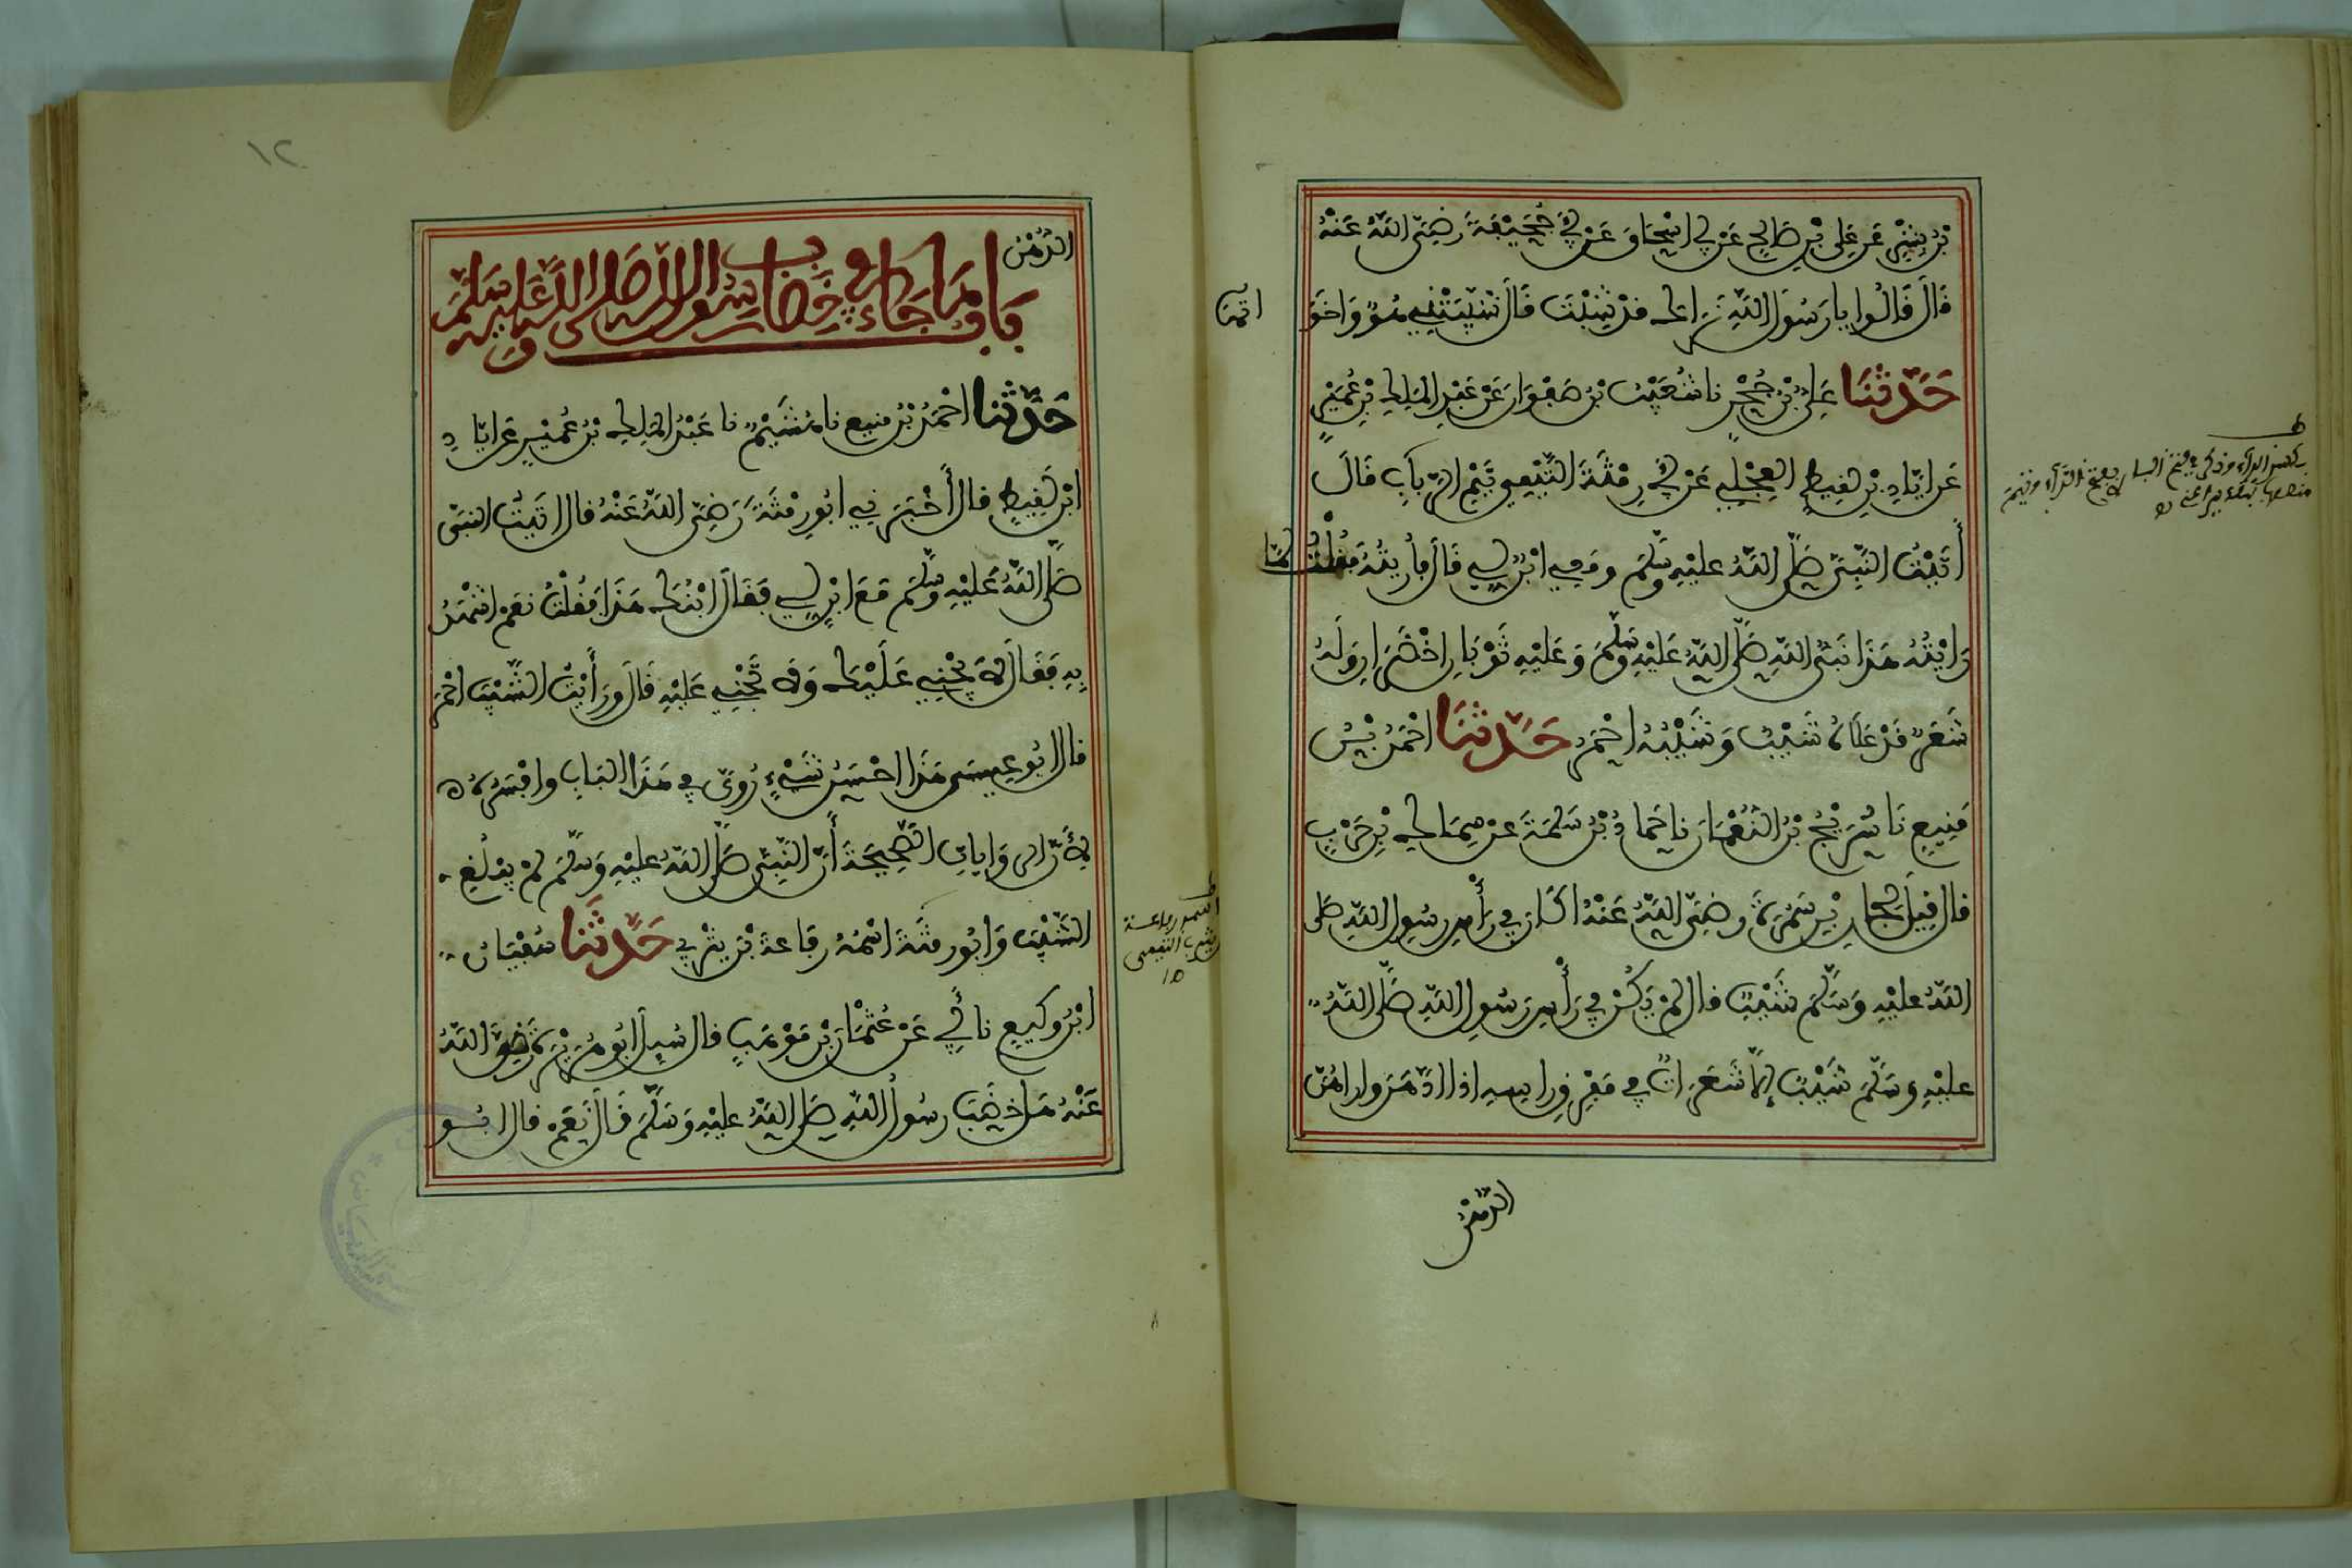 بْنُ بِشْرٍ عَن عَلِي بْنِ صَالِحٍ عَن أبي اسْحَاقَ عَنْ أَبِي جُحَيْفَةَ رَضِيَ اللَّهُ عَنْهُ
قَالَ قَالُوا يا رَسُولَ اللَّهِ نَراك قدْ شِبْتَ قَالَ شَيَّبَتْنِي هُودٌ وَاخَوَ
اتهَا
حَدَّثَنَا عَلِيُّ بْنُ حُجْرٍ نا شُعَيْبُ بْنُ صَفْوَانَ عَنْ عَبْدِ المَلِكِ بْنِ عُمَيْرٍ
عَن ايَّادِ بْنِ لَقِيطٍ العِجْلِي عَنْ أَبِي رِمْثَةَ التَّيْمِي تَيْمِ الرَّبابِ قَالَ
أَتَيْتُ النَّبِيَّ صَلَّى اللَّهُ عليْهِ وسَلَّمَ ومَعِي ابْنٌ لِي قَالَ فأُرِيتُهُ فَقُلْتُ لَمَّا
رَايْتُهُ هَذَا نَبِيُّ اللَّهِ صَلَّى اللَّهُ عَلَيْهِ وسَلَّمَ وَعَلَيْهِ ثَوْبَانِ اخْضَرَانِ وَلَهُ
شَعَرٌ قَدْ عَلاهُ شَيْبٌ وَشَيْبُهُ احْمَرُ حَدَّثَنَا احْمَدُ بْنُ
مَنِيعٍ نَا سُرَيْجُ بْنُ النُّعْمَانِ نا حَمادُ بْنُ سَلَمَةَ عنْ سِمَاكِ بْنِ حَرْبٍ
قال قِيلَ لِجابِرِ بْنِ سَمُرَةَ رضِيَ اللَّهُ عَنْهُ اكَانَ فِي رَأْسِ رسُولِ اللَّهِ صَلى
اللَّهُ عليْهِ وَسَلَّمَ شَيْبٌ قال لمْ يَكُنْ فِي رَأْسِ رَسُولِ اللَّهِ صَلَّى اللَّهُ
عليْهِ وسَلَّمَ شَيْبٌ إلاَّ شَعَرَاتٌ فِي مَفْرِقِ رَاسِهِ اذا ادَّهَنَ وارَاهُنَّ
الدُّهْنُ
الدُّهْنُ
بَابُ مَا جَاءَ فِي خِضَابِ رسُولِ اللَّهِ صَلَّى اللَّهُ عَلَيْهِ وسَلَّمَ
حَدَّثنا احْمَدُ بْنُ منِيعٍ نا هُشَيْمٌ نا عَبْدُ المَلِكِ بْنُ عُمَيْرٍ عَن ايَّادِ
ابْنِ لَقِيطٍ قال أَخْبَرَنِي ابُو رِمْثَةَ رَضِيَ اللَّهُ عَنْهُ قال اتَيْتُ النبيَّ
صَلَّى اللَّهُ عَلَيْهِ وسَلَّمَ مَعَ ابْنٍ لِي فَقَالَ ابْنُكَ هَذَا فَقُلْتُ نعَمْ اشْهَدُ
بِهِ فَقَالَ لا يَجْنِي عَلَيْكَ وَلا تَجْنِي عَلَيْهِ قَالَ ورَأَيْتُ الشَّيْبَ احْمَرَ
قال ابُو عِيسَى هَذَا احْسَنُ شَيْءٍ رُوِيَ فِي هَذَا البَابِ وافْسَرُهُ
لأَنَّ الروَايَاتِ الصَّحِيحَةَ أَنَّ النَّبِيَّ صَلَّى اللَّهُ عليْهِ وَسَلَّمَ لمْ يبْلُغِ
الشَّيْبَ وَابُو رمْثَةَ اسْمُهُ رِفَاعَةُ بْنُ يَثْرِبِي حَدَّثَنَا سُفْيَانُ
ابْنُ وكِيعٍ نا أَبِي عَنْ عُثْمَانَ بْنِ مَوْهَبٍ قال سُيِلَ ابُو هُرَيْرَةَ رَضِيَ اللَّهُ
عَنْهُ هَلْ خَضَبَ رسُولُ اللَّهِ صَلى اللَّهُ عليْهِ وَسَلَّمَ قَالَ نَعَمْ قال ابُو
١٢